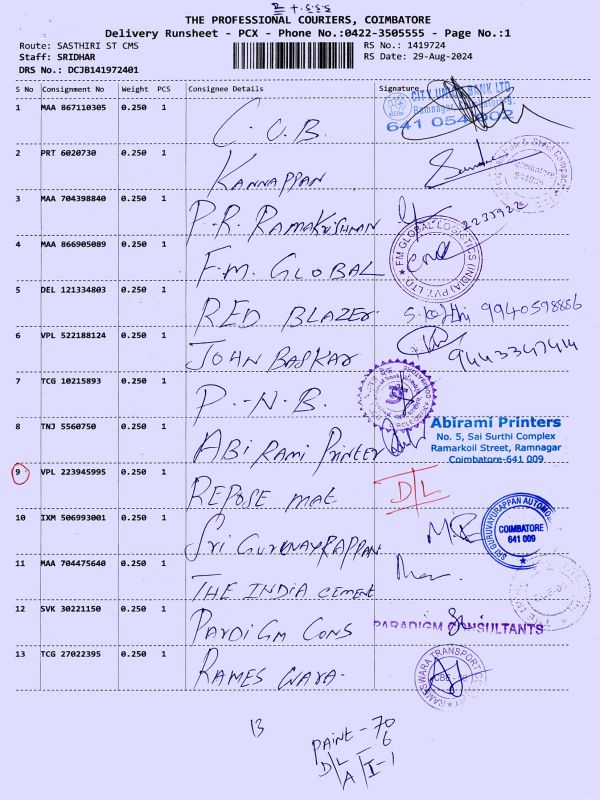 THE PROFESSIONAL COURIERS, COIMBATORE
Delivery Runsheet - PCX - Phone No.:0422-3505555 - Page No.:1
Route: SASTHIRI ST CMS
RS No.: 1419724
Staff: SRIDHAR
RS Date: 29-Aug-2024
DRS No.: DCJB141972401
S No Consignment No Weight PCS Consignee Details Signature
1 MAA 867110305 0.250 1 C.U.B. CITY UNION BANK LTD
641 054
2 PRT 6020730 0.250 1 KANNAPPAN
3 MAA 704398840 0.250 1 P.R. RAMAKRISHNAN
4 MAA 866905089 0.250 1 F.M. GLOBAL FM GLOBAL LOGISTICS (INDIA) PVT. LTD
5 DEL 121334803 0.250 1 RED BLAZER
6 VPL 522188124 0.250 1 JOHN BASKAR
7 TCG 10215893 0.250 1 P.N.B.
8 TNJ 5560750 0.250 1 ABI RAMI PRINTER Abirami Printers
No. 5, Sai Surthi Complex
Ramarkoil Street, Ramnagar
Coimbatore-641 009
9 VPL 223945995 0.250 1 REPOSE mat D/L
10 IXM 506993001 0.250 1 SRI GURUVAYRAPPAN SRI GURUVAYURAPPAN
COIMBATORE
641 009
11 MAA 704475640 0.250 1 THE INDIA CEMENT
12 SVK 30221150 0.250 1 PARDIGM CONS PARADIGM CONSULTANTS
13 TCG 27022395 0.250 1 RAMES WARA RAMESWARA TRANSPORT
CBE
13
PAINT - 70
D/L - 6
A/I - 1